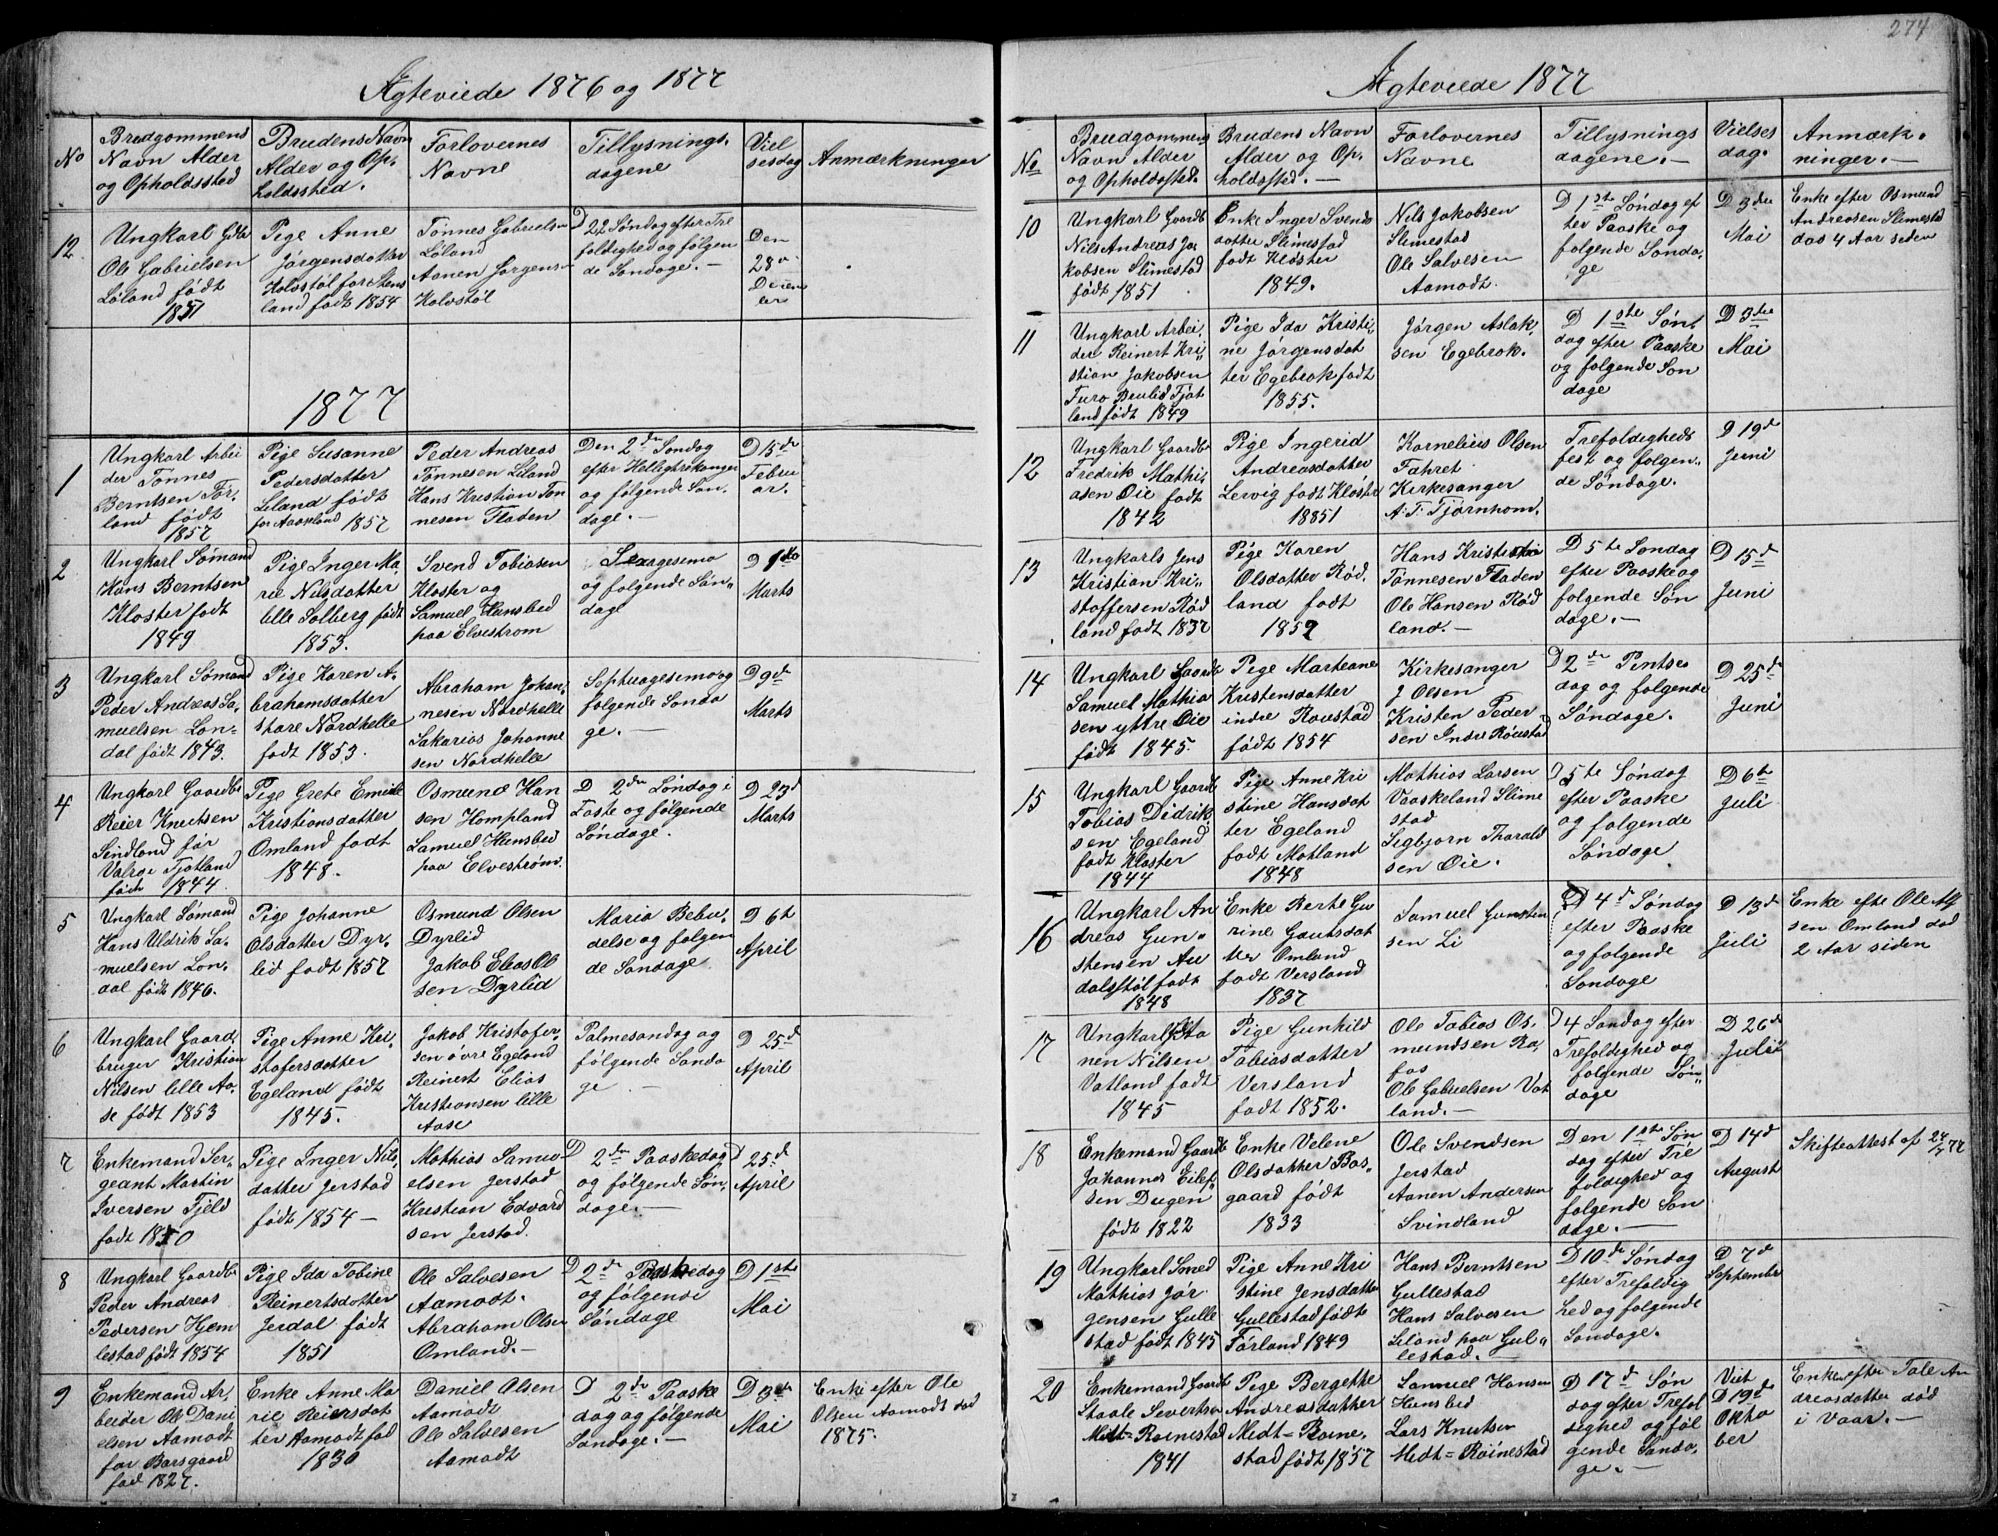 274
Ægteviede 1876 og 1877
No
Brudgommens
Navn Alder
og Opholdssted
Brudens Navn
Alder og Op-
holdssted.
Forlovernes
Navne
Tillysnings-
dagene
Viel
sesdag
Anmærkninger
12
Ungkarl Gdbr
Ole Gabrielsen
Løland født
1851
Pige Anne
Jørgensdatter
Kolostøl for Stens
land født 1854
Tønnes Gabrielsen
Løland
Aanen Jørgens-
Kolostøl
D 22 Søndag efter Tre
foldighed og følgen
de Søndage. —
Den
28de
Decem
ber
1877
1
Ungkarl Arbei
der Tønnes
Berntsen Før-
land født
1857
Pige Susanne
Pedersdatter
Liland født
for Aaseland 1857
Peder Andreas
Tønnesen Liland
Hans Kristian Tøn
nesen Fladen
Den 2den Søndag
efter Helligtrekonger
og følgende Søn-
dage. —
D 15de
Febru
ar.
2
Ungkarl Sømand
Hans Berntsen
Kloster født
1849
Pige Inger Ma-
rie Nilsdatter
lille Solberg født
1853.
Svend Tobiasen
Kloster og
Samuel Hunsbed
paa Elvestrom
Sexagesima
og følgende Søn-
dage
D 1ste
Marts
3
Ungkarl Sømand
Peder Andreas Sa-
muelsen Lon-
dal født 1843.
Pige Karen A-
brahamsdatter
store Nordhelle
født 1853.
Abraham Johan-
nesen Nordhelle
Sakarias Johanne
sen Nordhelle
Septuagesima og
følgende Sønda
ge. —
D 9de
Marts
4
Ungkarl Gaardbr
Reier Knutsen
Sindland før
Valge Tjotland
født 1844.
Pige Grete Emilie
Kristiansdatter
Omland født
1848.
Osmund Han
sen Hompland
Samuel Hunsbed
paa Elvestrøm.
D 2den Søndag i
Faste og følgende
Søndage.
D 23d
Marts
5
Ungkarl Sømand
Hans Uldrik Sa-
muelsen Lon-
dal født 1846.
Pige Johanne
Olsdatter Dyr-
lid født 1857
Osmund Olsen
Dyrlid
Jakob Elias Ol
sen Dyrlid
Maria Bebu-
delse og følgen
de Søndage.
D 6t
April
6
Ungkarl Gaard-
bruger Kristian
Nilsen lille Aa-
se født 1853
Pige Anne Kri-
stofersdatter
Egeland født
1845.
Jakob Kristofer-
sen øvre Egeland
Reinert Elias
Kristiansen lille
Aase
Palmesøndag og
følgende Sønda
ge —
D 25d
April
7
Enkemand Ser-
geant Martin
Iversen Fjeld
født 1850
Pige Inger Nils-
datter Jerstad
født 1854 —
Mathias Samu-
elsen Jerstad
Kristian Edvard
sen Jerstad.
D 2den Paaskedag
og følgende Søn-
dage. —
D 25d
April
8
Ungkarl Gaardbr
Peder Andreas
Pedersen Hjem
lestad født 1854
Pige Ida Tobine
Reinertsdatter
Jerdal født
1851
Ole Salvesen
Aamodt.
Abraham Olsen
Omland. —
D 2den Paaskedag
og følgende
Søndage
D 1ste
Mai
9
Enkemand Ar-
beider Ole Dani
elsen Aamodt
for Barsgaard
fød 1827.
Enke Anne Ma-
rie Reiersdat
ter Aamodt fød
1830
Daniel Olsen
Aamodt
Ole Salvesen
Aamodt
D 2den Paaske
dag og følgende
Søndage. —
D 3die
Mai
Enke efter Ole
Olsen Aamodt død
1875.
Ægteviede 1877
No
Brudgommens
Navn Alder
og Opholdssted.
Brudens Navn
Alder og Op-
holdssted. —
Forlovernes
Navne
Tillysnings
dagene. —
Vielses
dag.
Anmærk-
ninger. —
10
Ungkarl Gaardb
Nils Andreas Ja-
kobsen Slimestad
født 1851
Enke Inger Svends
datter Slimestad
født Kloster
1849.
Nils Jakobsen
Slimestad
Ole Salvesen
Aamodt.
D 1ste Søndag ef
ter Paaske og
følgende Sønda-
ge
D 3die
Mai
Enke efter Osmund
Andreasen Slimestad
død 4 Aar siden
11
Ungkarl Arbei-
der Reinert Kri-
stian Jakobsen
Furo Beulid Tjøt
land født 1849
Pige Ida Kristi-
ne Jørgensdat
ter Egebrok født
1855.
Jørgen Aslak-
sen Egebrok.
D 1ste Søn-
dag efter Paaske
og følgende Søn
dage
D 3die
Mai
12
Ungkarl Gaardbr
Fredrik Mathi-
asen Øie født
1842
Pige Ingerid
Andreasdatter
Lervig født Kloster
18851
Kornelius Olsen
Fahret
Kirkesanger
A. T. Tjørnhom.
Trefoldigheds
fest og følgen-
de Søndage.
D 19d
Juni
13
Ungkarls Jens
Kristian Kri-
stoffersen Rød
land født 1837
Pige Karen
Olsdatter Rød-
land født
1852
Hans Kristian
Tønnesen Fladen
Ole Hansen Rød
land. —
D 5te Søndag
efter Paaske og
følgende Søn
dage. —
D 15d
Juni
14
Ungkarl Gaardb
Samuel Mathia
sen yttre Øie
født 1845.
Pige Marteane
Kristensdatter
indre Roustad
født 1854
Kirkesanger
J Olsen
Kristen Peder
sen Indre Roustad
D 2den Pintse
dag og følgende
Søndage.
D 25d
Juni
15
Ungkarl Gaardb
Tobias Didrik-
sen Egeland
født Kloster
1844
Pige Anne Kri
stine Hansdat
ter Egeland
født Motland
1848
Mathias Larsen
Vaaskeland Slime
stad
Sigbjørn Tharald
sen Øie.
D 5te Søndag
efter Paaske
og følgende
Søndage
D 6te
Juli
16
Ungkarl An
dreas Gun-
stensen Au
dalstøl født
1848
Enke Berte Gu
rine Gautsdat
ter Omland
født Versland
1837
Samuel Gunsten
sen Li
D 4d Søndag
efter Paaske
og følgende
Søndage
D 13d
Juli
Enke efte Ole Alf
sen Omland død
2 Aar siden
17
Ungkarl Aa
nen Nilsen
Vatland født
1845
Pige Gunhild
Tobiasdatter
Versland
født 1852.
Ole Tobias Os-
mundsen Ra-
fos
Ole Gabrielsen Vat
land. —
D 4 Søndag efter
Trefoldighed og
følgende Søn-
dage
D 26d
Juli
18
Enkemand Gaardb
Johannes Eilef-
sen Dugen
født 1822
Enke Velene
Olsdatter Bas-
gaard født
1833
Ole Svendsen
Jerstad
Aanen Andersen
Svindland
Den 1ste Søn
dag efter Tre
foldighed og
følgende Søn
dage. —
D 14d
August
Skifteattest af 24/7 77
19
Ungkarl Smed
Mathias Jør
gensen Gulle
stad født 1845
Pige Anne Kri
stine Jensdatter
Gullestad født
Førland 1849
Hans Berntsen
Gullestad
Hans Salvesen
Liland paa Gul-
lestad. —
D 10de Søndag
efter Trefoldig
hed og følgende
Søndage.
D 7d
September
20
Enkemand Gaardb
Staale Severtsen
Midt= Roinestad
1841
Pige Bergette
Andreasdatter
Medt= Roine-
stad født 1857
Samuel Hansen
Hunsbed
Lars Knutsen
Midt= Roinestad
D 17d Søn
dag efter Trefol
dighed og føl
gende Sønda-
ge. —
Viet
D 19de
Okto
ber
Enkem efter Tale An
dreasdatter død
i Vaar. —